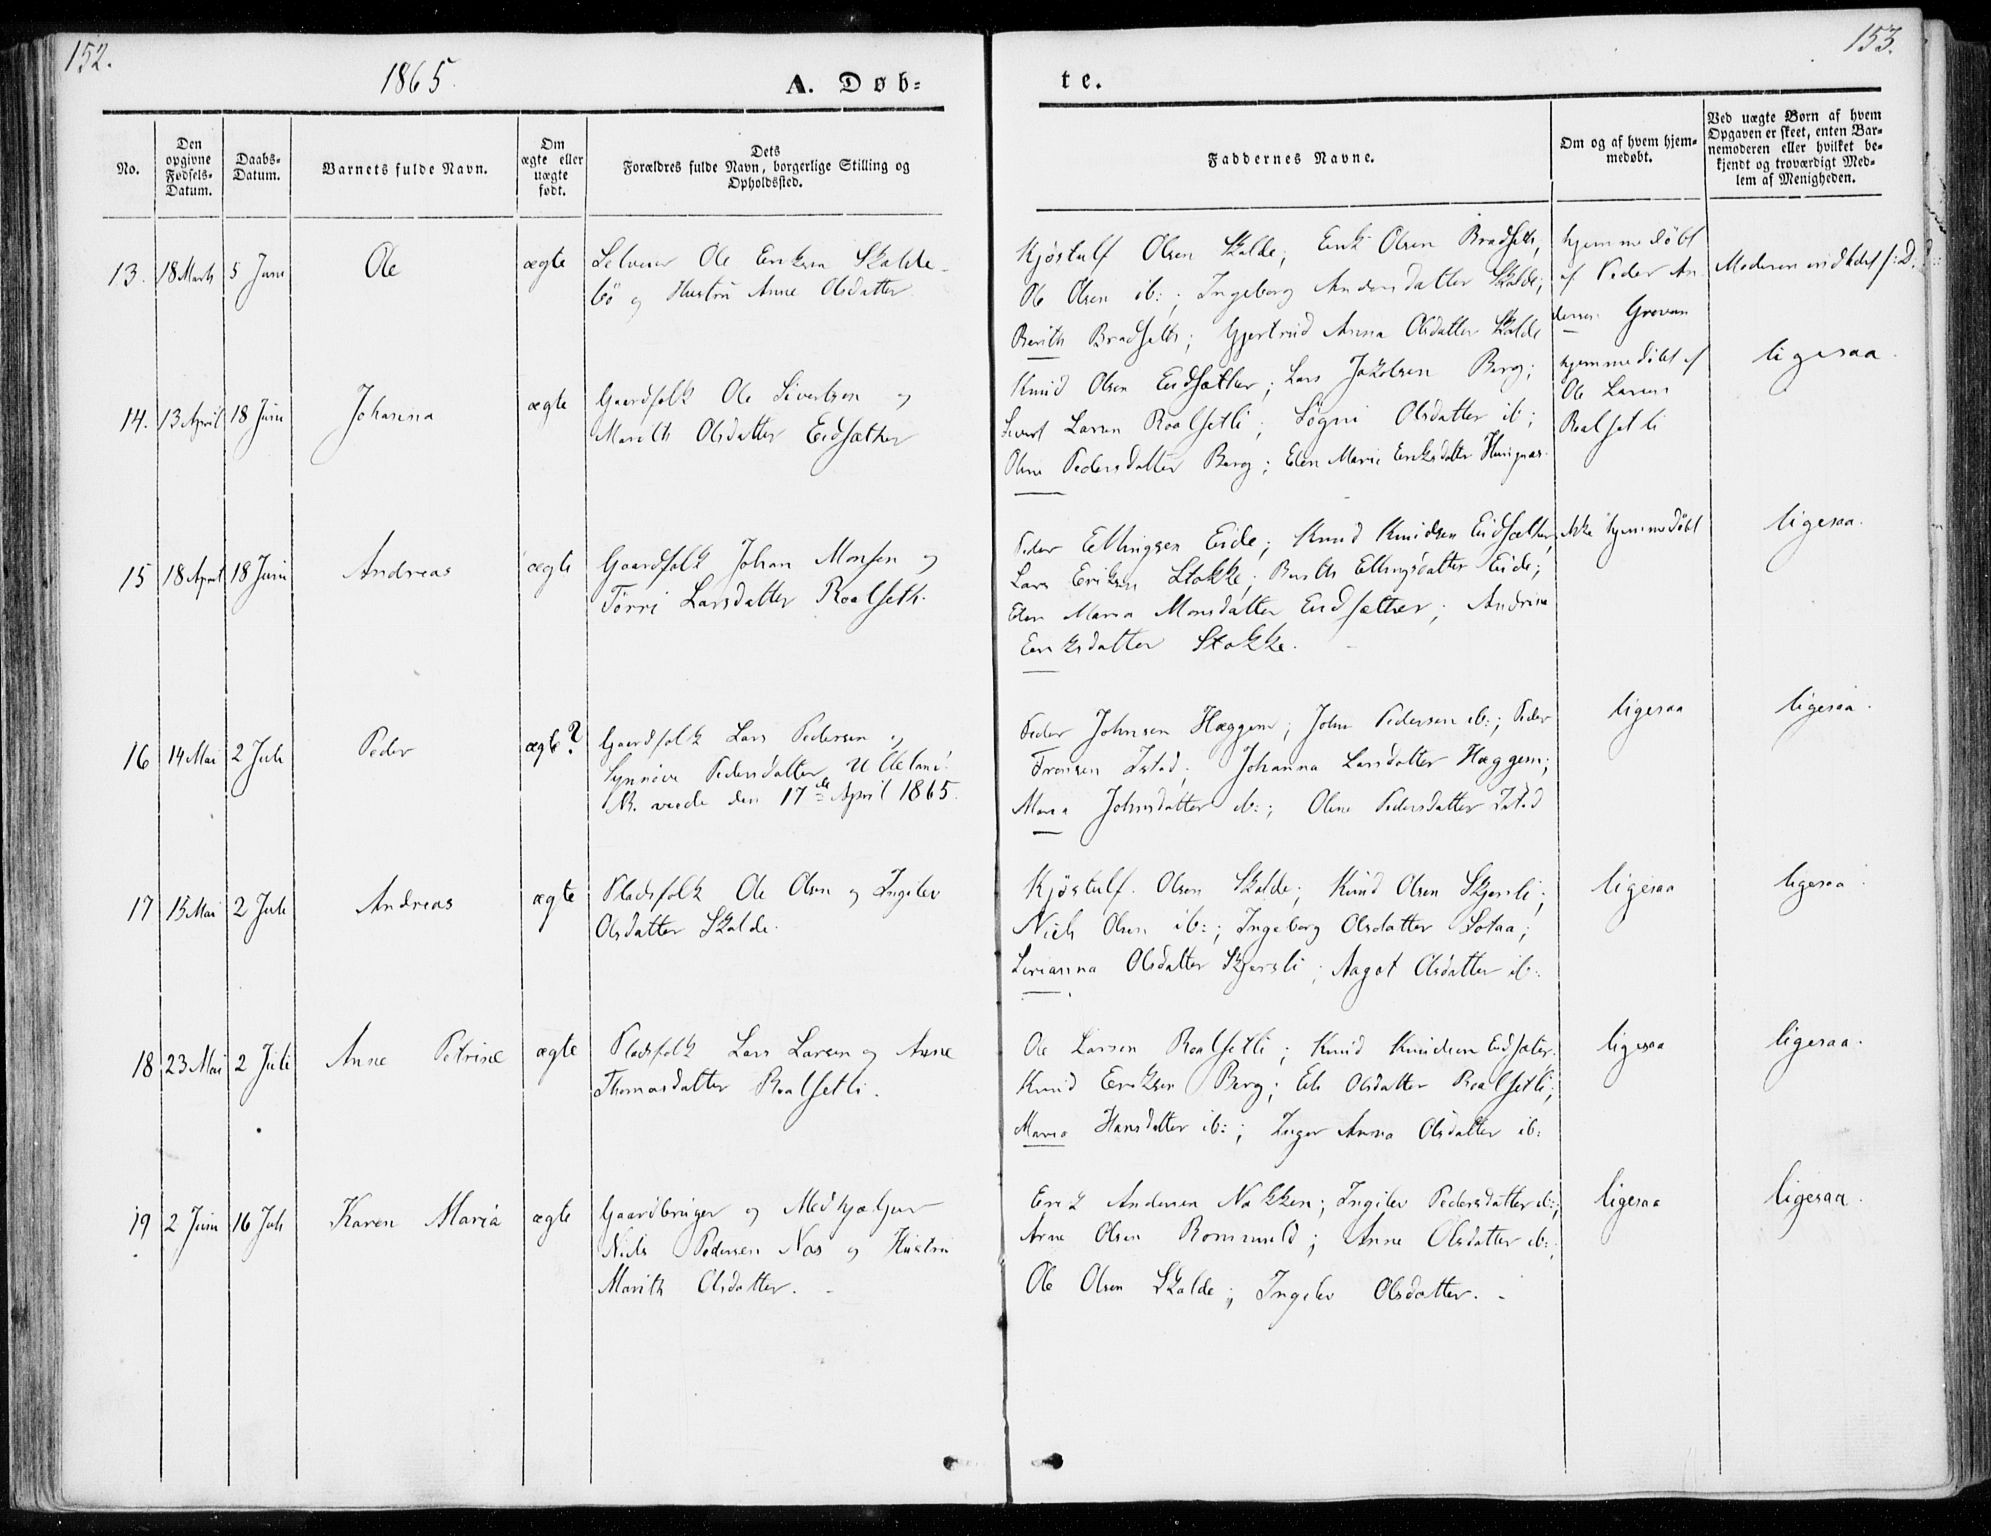 152.
153.
1865.
A. Døb-
te.
No.
Den opgivne Fødsels-Datum.
Daabs-Datum.
Barnets fulde Navn.
Om ægte eller uægte født.
Dets Forældres fulde Navn, borgerlige Stilling og Opholdssted.
Faddernes Navne.
Om og af hvem hjemmedøbt.
Ved uægte Børn af hvem Opgaven er skeet, enten Barnemoderen eller hvilket bekjendt og troværdigt Medlem af Menigheden.
13. 18 Marts 5 Juni Ole ægte
Selveier Ole Eriksen Skalde-
bö og Hustru Anne Olsdatter
Kjöstulf Olsen Skalde; Erik Olsen Bradseth,
Ole Olsen ib:; Ingeborg Andersdatter Skalde;
Berith Bradseth; Gjertrud Anna Olsdatter Skalde
hjemmedöbt
af Peder An
dersen Grovan
Moderen
14. 13 April 18 Juni Johanna ægte
Gaardfolk Ole Sivertsen og
Marith Olsdatter Eidsæther
Knud Olsen Eidsæther; Lars Jakobsen Berg;
Sivert Larsen Roalsetli; Sögni Olsdatter ib;
Oline Pedersdatter Berg; Elen Marie Eriksdatter
hjemmedöbt af
Ole Larsen
Roalsetli
ligesaa.
15 18 April 18 Juni Andreas ægte
Gaardfolk Johan Monsen og
Törri Larsdatter Roalseth.
Peder Ellingsen Eide; Knud Knudsen Eidsæther
Lars Eriksen Stokke; Berith Ellingsdatter Eide;
Elen Maria Monsdatter Eidsæther; Andrine
Eriksdatter Stokke.
ikke hjemmedöbt
ligesaa.
16 14 Mai 2 Juli Peder ægte?
Gaardfolk Lars Pedersen og
Synnöve Pedersdatter
den 17de April 1865.
Peder Johnsen Hæggem; John Pedersen ib:; Peder
Tronsen Istad; Johanna Larsdatter Hæggem;
Maria Johnsdatter ib:; Oline Pedersdatter Istad
ligesaa
ligesaa.
17 15 Mai 2 Juli Andreas ægte
Pladsfolk Ole Olsen og Ingelev
Olsdatter Skalde.
Kjöstulf Olsen Skalde; Knud Olsen Skjersli;
Niels Olsen ib:; Ingeborg Olsdatter Sotaa;
Serianna Olsdatter Skjersli; Aagot Olsdatter ib:
ligesaa
ligesaa.
18 23 Mai 2 Juli Anne Petrine ægte
Pladsfolk Lars Larsen og Anne
Thomasdatter Roalsetli.
Ole Larsen Roalsetli; Knud Knudsen Eidsæter.
Knud Eriksen Berg; Eli Olsdatter Roalsetli;
Maria Hansdatter ib:; Inger Anna Olsdatter ib:
ligesaa
ligesaa.
19 2 Juni 16 Juli Karen Maria ægte
Gaardbruger og Medhjælper
Niels Pedersen Nas og Hustru
Marith Olsdatter.
Erik Andersen Nakken; Ingilev Pedersdatter ib:;
Arne Olsen; Anne Olsdatter ib:;
Ole Olsen Skalde; Ingelev Olsdatter.
ligesaa
ligesaa.